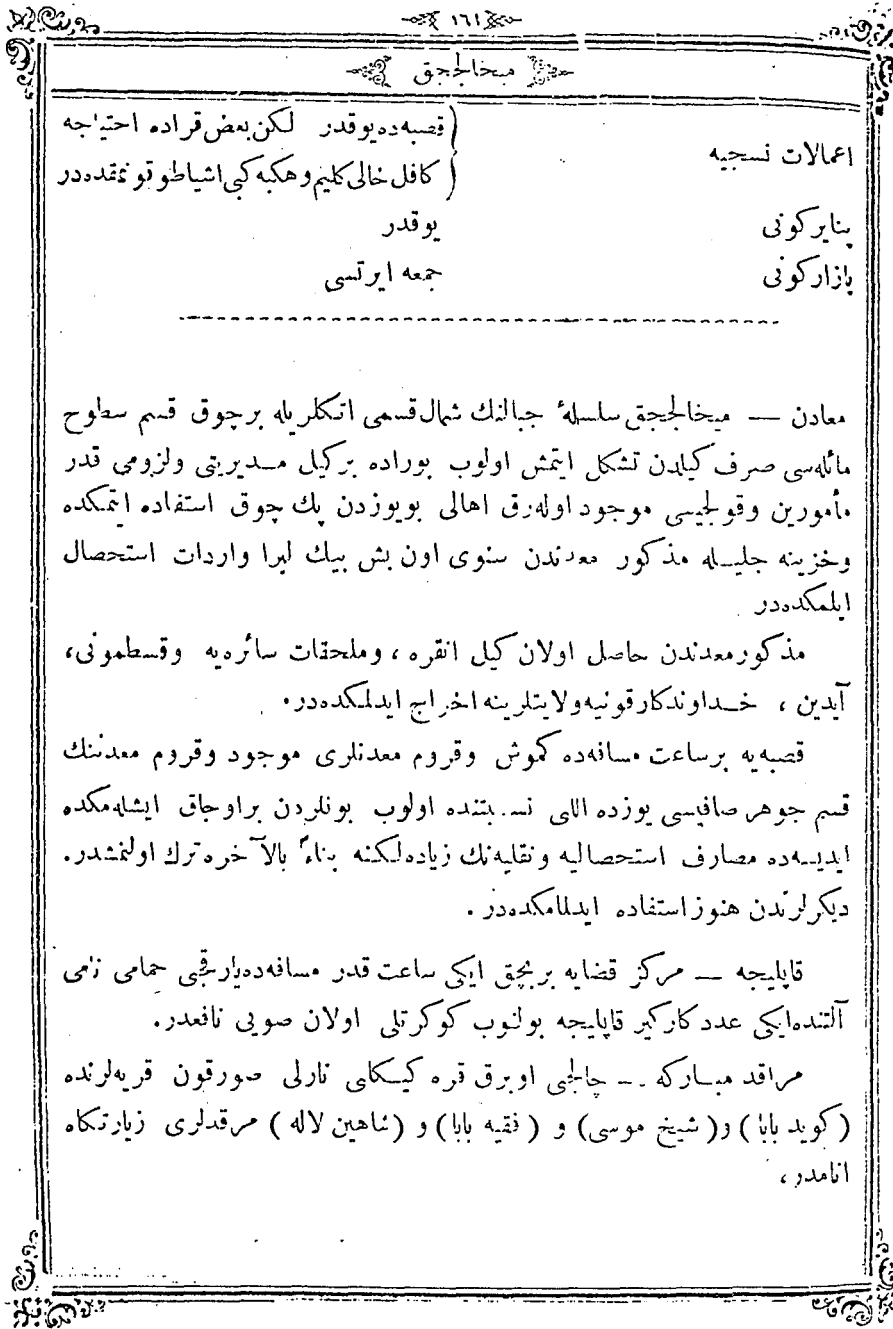 ١٦١
ميخاليچجق
اعمالات نسجيه
قصبه‌ده يوقدر لكن بعض قراده احتياجه
كافل خالى كليم وهكبه كبى اشيا طوقونمقده‌در
پناير كونى يوقدر
بازار كونى جمعه ايرتسى
معادن — ميخاليچجق سلسلهٔ جبالنك شمال قسمى اتكلريله برچوق قسم سطوح
مائله‌سى صرف كيلدن تشكل ايتمش اولوب بوراده بر كيل مديريتى ولزومى قدر
مأمورين وقولجيسى موجود اوله‌رق اهالى بويوزدن پك چوق استفاده ايتمكده
وخزينه جليله مذكور معدندن سنوى اون بش بيك ليرا واردات استحصال
ايلمكده‌در
مذكور معدندن حاصل اولان كيل انقره ، وملحقات سائره‌يه وقسطمونى،
آيدين ، خداوندكار قونيه ولايتلرينه اخراج ايدلمكده‌در.
قصبه‌يه بر ساعت مسافه‌ده كموش وقروم معدنلرى موجود وقروم معدننك
قسم جوهر صافيسى يوزده اللى نسبتنده اولوب بونلردن براوجاق ايشله‌مكده
ايديسه‌ده مصارف استحصاليه ونقليه‌نك زياده‌لكنه بناءً بالآخره ترك اولنمشدر.
ديكرلرندن هنوز استفاده ايدلمامكده‌در .
قاپليجه — مركز قضايه بربچق ايكى ساعت قدر مسافه‌ده حمامى نامى
آلتنده ايكى عدد كاركير قاپليجه بولنوب كوكرتلى اولان صويى نافعدر.
مراقد مباركه — چالجى اوبرق قره كيسكلى نارلى صورقون قريه‌لرنده
(كويد بابا) و (شيخ موسى) و (فقيه بابا) و (شاهين لاله) مرقدلرى زيارتكاه
انامدر ،